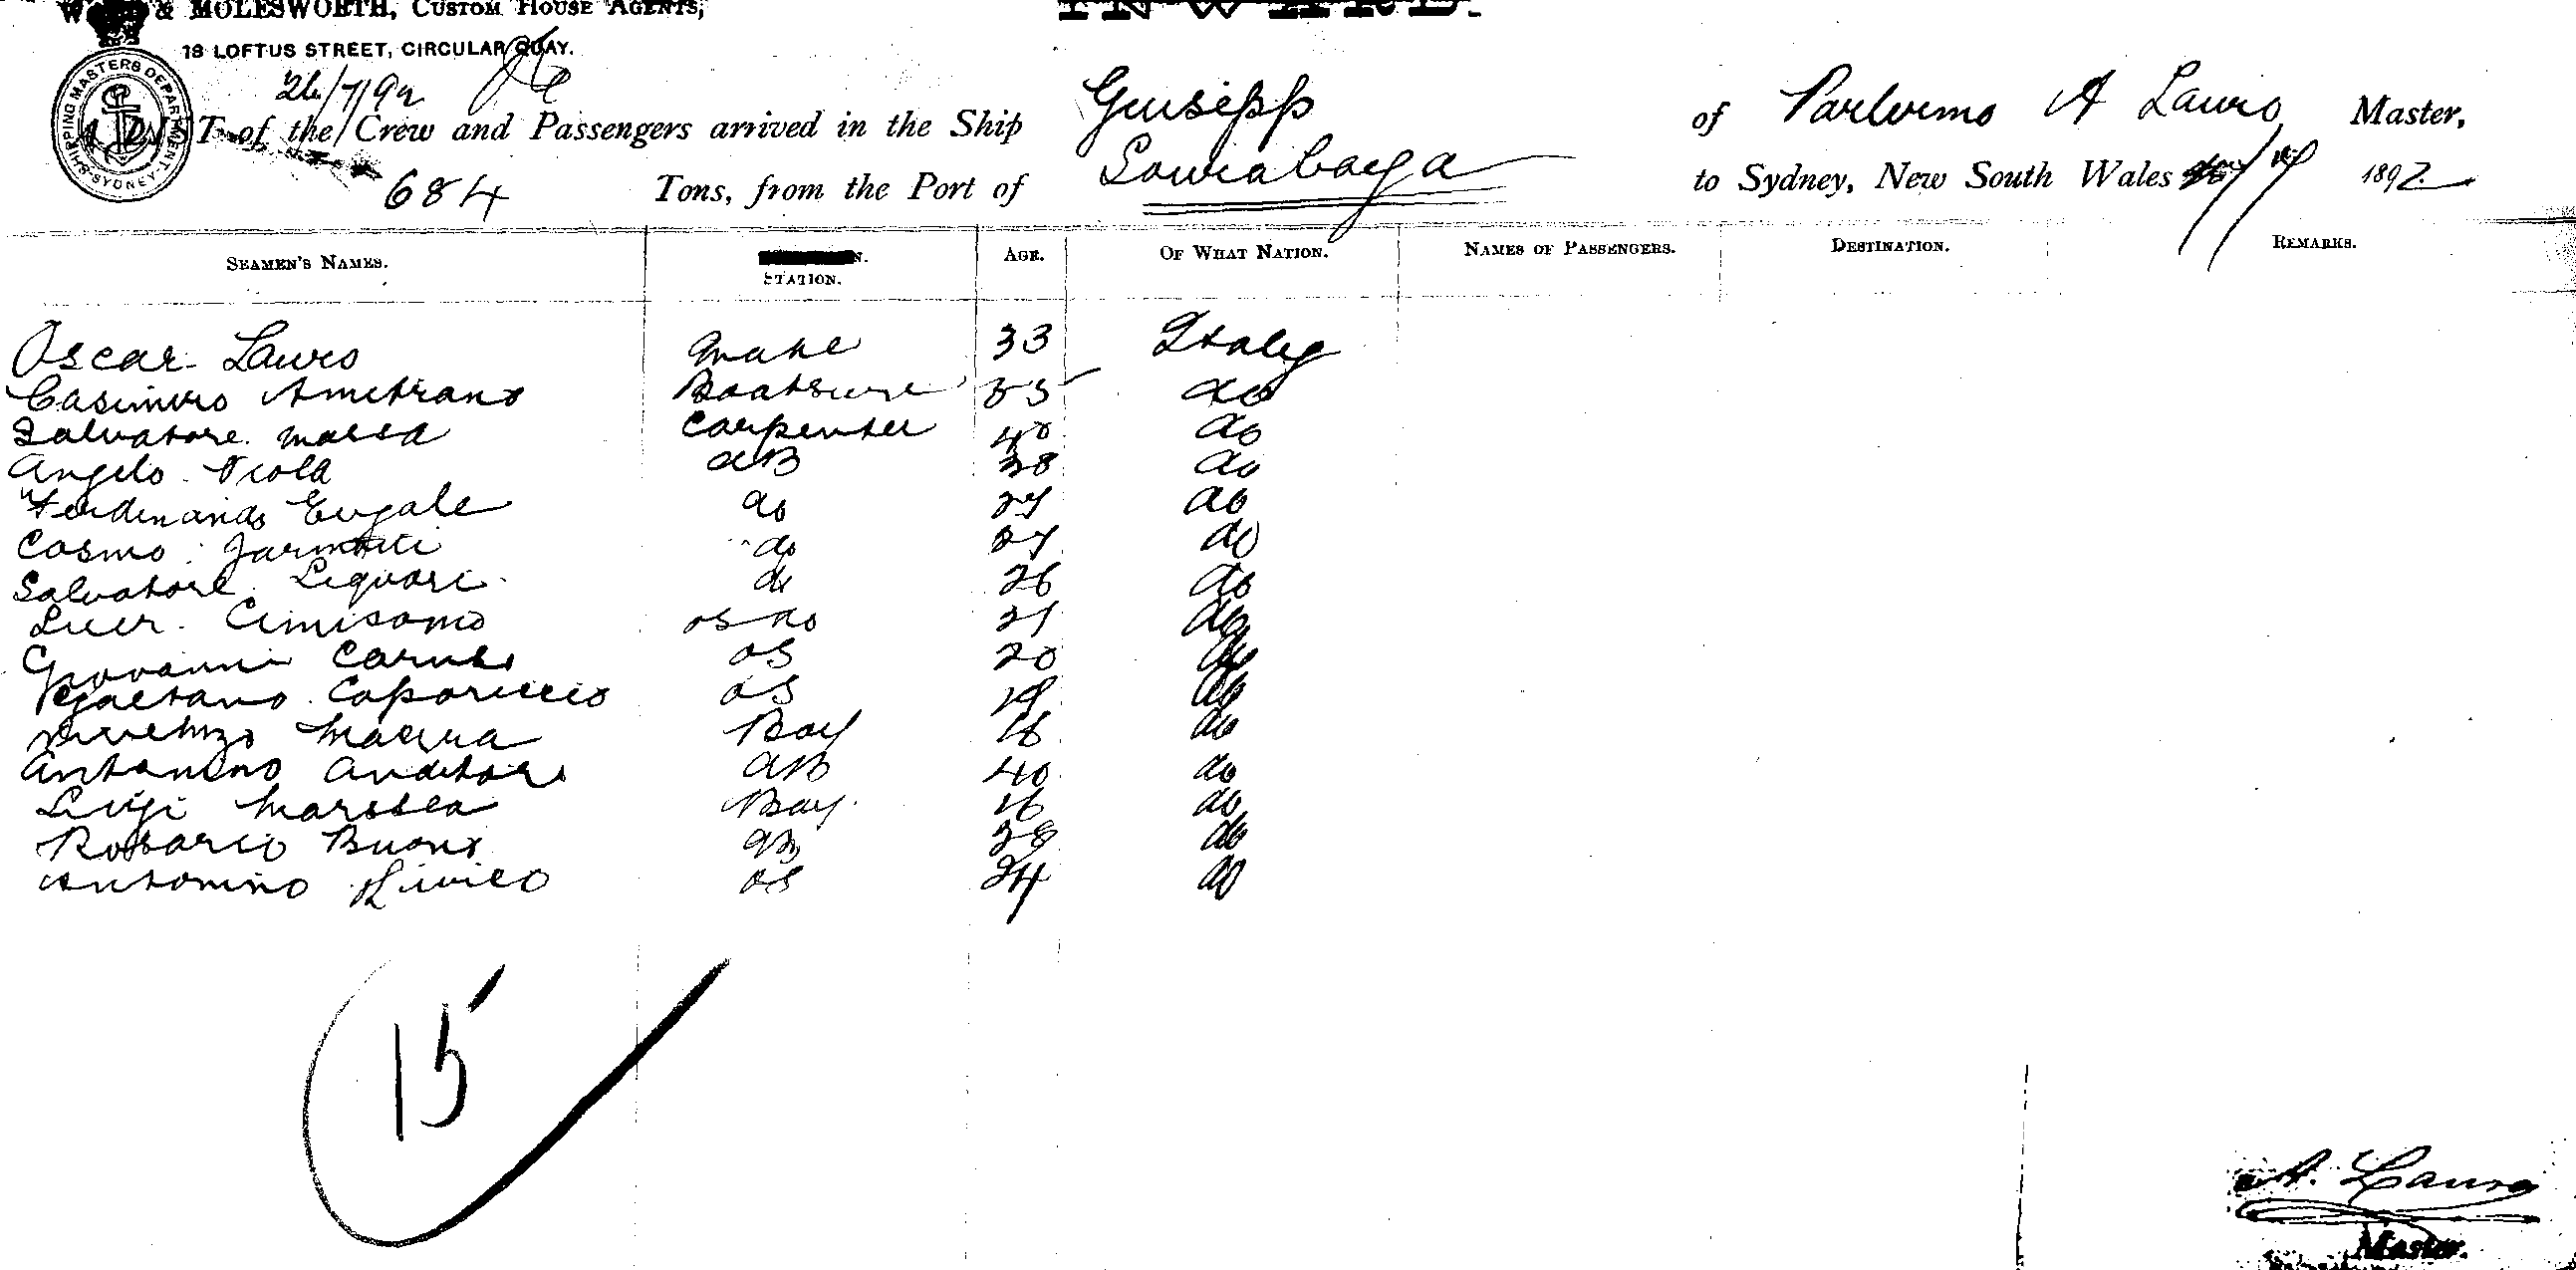 & MOLESWORTH, CUSTOM HOUSE AGENTS,
INWARD.
18 LOFTUS STREET, CIRCULAR QUAY.
SHIPPING MASTERS DEPARTMENT SYDNEY
26/7/92
A LIST of the Crew and Passengers arrived in the Ship Guisepp of Parlermo A Lauro Master,
684 Tons, from the Port of Sourabaya to Sydney, New South Wales 1892
SEAMEN'S NAMES. STATION. AGE. OF WHAT NATION. NAMES OF PASSENGERS. DESTINATION. REMARKS.
Oscar Lauro Mate 33 Italy
Casimiro Ametrano 35 do
Salvatore Massa Carpenter 40 do
Angelo Viola AB 38 do
Ferdinando do 27 do
Cosmo do 27 do
Salvatore Liguori do 26 do
Cimisamo OS do 21 do
Giovanni Caruso OS 20 do
Gaetano Caporiccio OS 19 do
Boy 16 do
Antonino Anditore AB 40 do
Luigi Boy 16 do
Rosario Buono AB 38 do
Antonino OS 24 do
15
A. Lauro
Master.